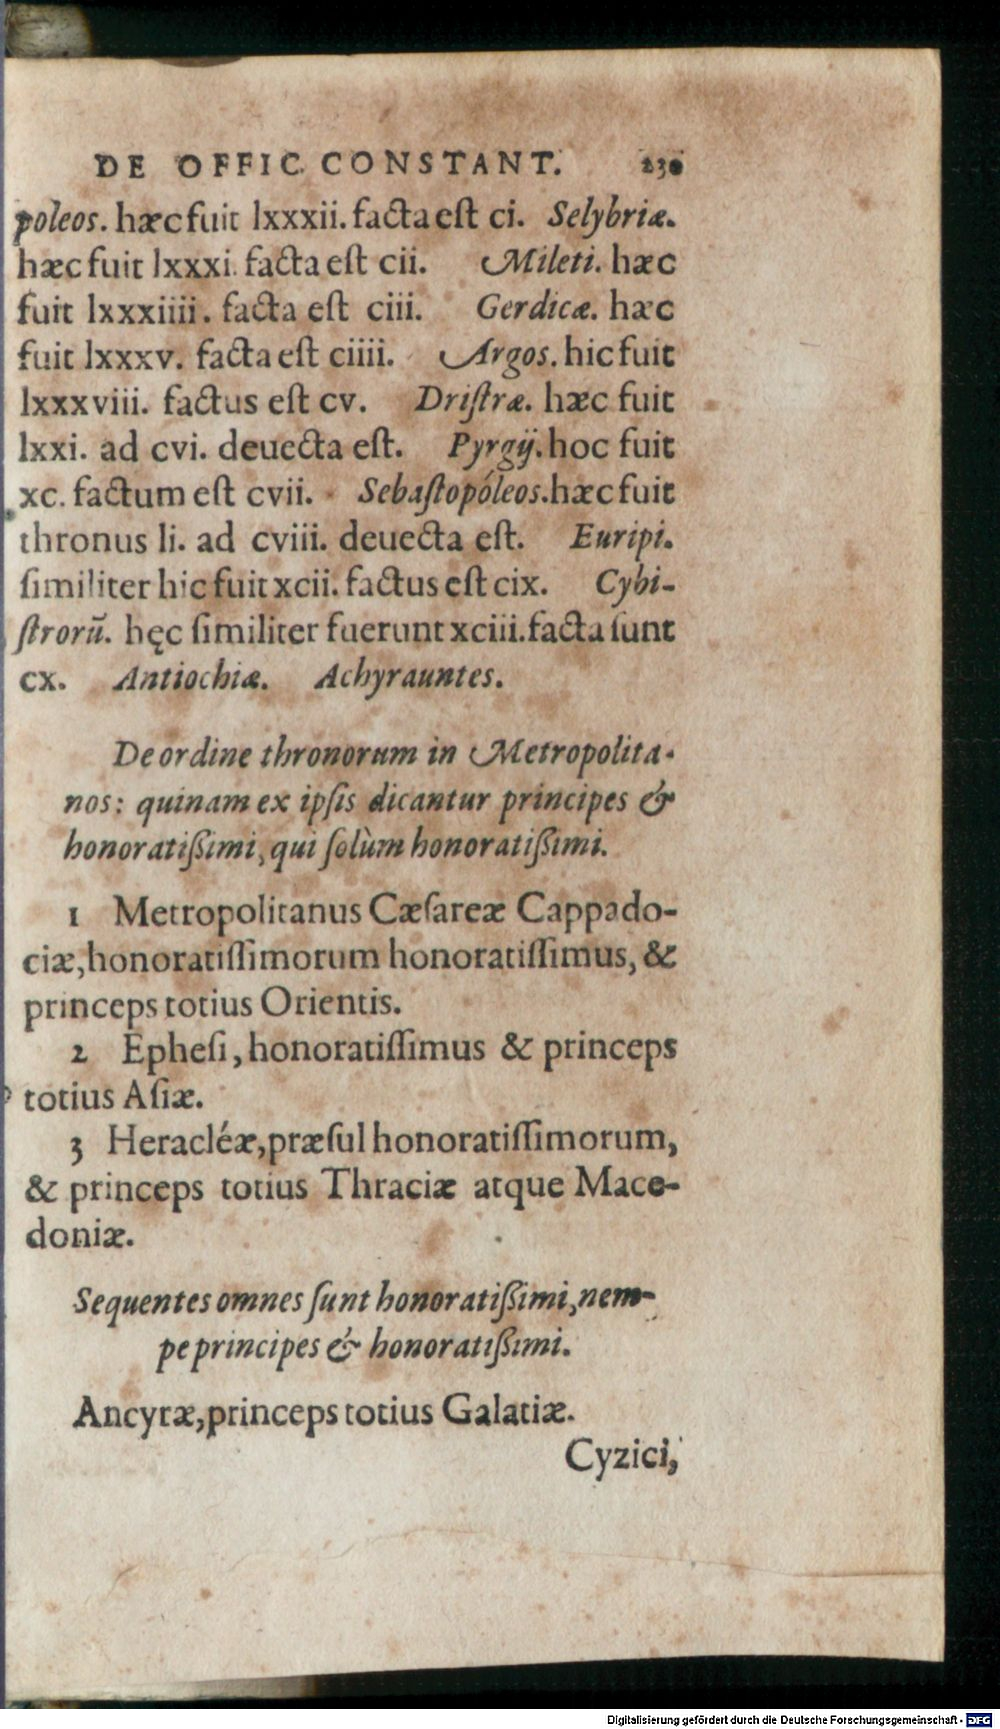 DE OFFIC. CONSTANT. 230
poleos. hæc fuit lxxxii. facta eſt ci. Selybriæ.
hæc fuit lxxxi. facta eſt cii. Mileti. hæc
fuit lxxxiiii. facta eſt ciii. Gerdicæ. hæc
fuit lxxxv. facta eſt ciiii. Argos. hic fuit
lxxxviii. factus eſt cv. Driſtræ. hæc fuit
lxxi. ad cvi. deuecta eſt. Pyrgij. hoc fuit
xc. factum eſt cvii. Sebaſtopóleos. hæc fuit
thronus li. ad cviii. deuecta eſt. Euripi.
ſimiliter hic fuit xcii. factus eſt cix. Cybi-
ſtrorũ. hęc ſimiliter fuerunt xciii. facta ſunt
cx. Antiochiæ. Achyrauntes.
De ordine thronorum in Metropolita-
nos: quinam ex ipſis dicantur principes &
honoratißimi, qui ſolùm honoratißimi.
1 Metropolitanus Cæſareæ Cappado-
ciæ, honoratiſſimorum honoratiſſimus, &
princeps totius Orientis.
2 Epheſi, honoratiſſimus & princeps
totius Aſiæ.
3 Heracléæ, præſul honoratiſſimorum,
& princeps totius Thraciæ atque Mace-
doniæ.
Sequentes omnes ſunt honoratißimi, nem-
pe principes & honoratißimi.
Ancyræ, princeps totius Galatiæ.
Cyzici,
Digitalisierung gefördert durch die Deutsche Forschungsgemeinschaft - DFG